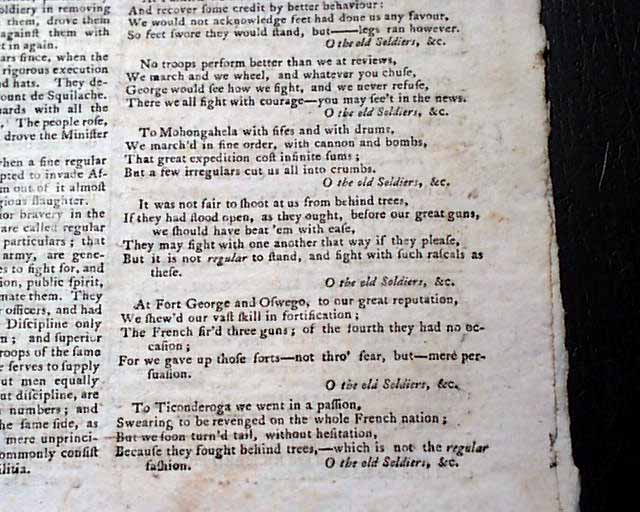 ldiery in removing
them, drove them
against them with
t in again.
ars since, when the
rigorous execution
nd hats. They de-
ount de Squilache.
uards with all the
. The people rose,
drove the Minister
when a fine regular
pted to invade Af-
m out of it almost
gious ſlaughter.
ior bravery in the
are called regular
particulars; that
army, are gene-
es to fight for, and
ion, public ſpirit,
mate them. They
officers, and had
Diſcipline only
n; and ſuperior
roops of the ſame
e ſerves to ſupply
ut men equally
ut diſcipline, are
numbers; and
the ſame ſide, as
mere unprinci-
ommonly conſiſt
ilitia.
And recover ſome credit by better behaviour:
We would not acknowledge feet had done us any favour,
So feet ſwore they would ſtand, but——legs ran however.
O the old Soldiers, &c.
No troops perform better than we at reviews,
We march and we wheel, and whatever you chuſe,
George would ſee how we fight, and we never refuſe,
There we all fight with courage—you may ſee't in the news.
O the old Soldiers, &c.
To Mohongahela with fifes and with drums,
We march'd in fine order, with cannon and bombs,
That great expedition coſt infinite ſums;
But a few irregulars cut us all into crumbs.
O the old Soldiers, &c.
It was not fair to ſhoot at us from behind trees,
If they had ſtood open, as they ought, before our great guns,
we ſhould have beat 'em with eaſe,
They may fight with one another that way if they pleaſe,
But it is not regular to ſtand, and fight with ſuch raſcals as
theſe.
O the old Soldiers, &c.
At Fort George and Oſwego, to our great reputation,
We ſhew'd our vaſt ſkill in fortification;
The French fir'd three guns; of the fourth they had no oc-
caſion;
For we gave up thoſe forts—not thro' fear, but—mere per-
ſuaſion.
O the old Soldiers, &c.
To Ticonderoga we went in a paſſion,
Swearing to be revenged on the whole French nation;
But we ſoon turn'd tail, without heſitation,
Becauſe they fought behind trees,—which is not the regular
faſhion. O the old Soldiers, &c.